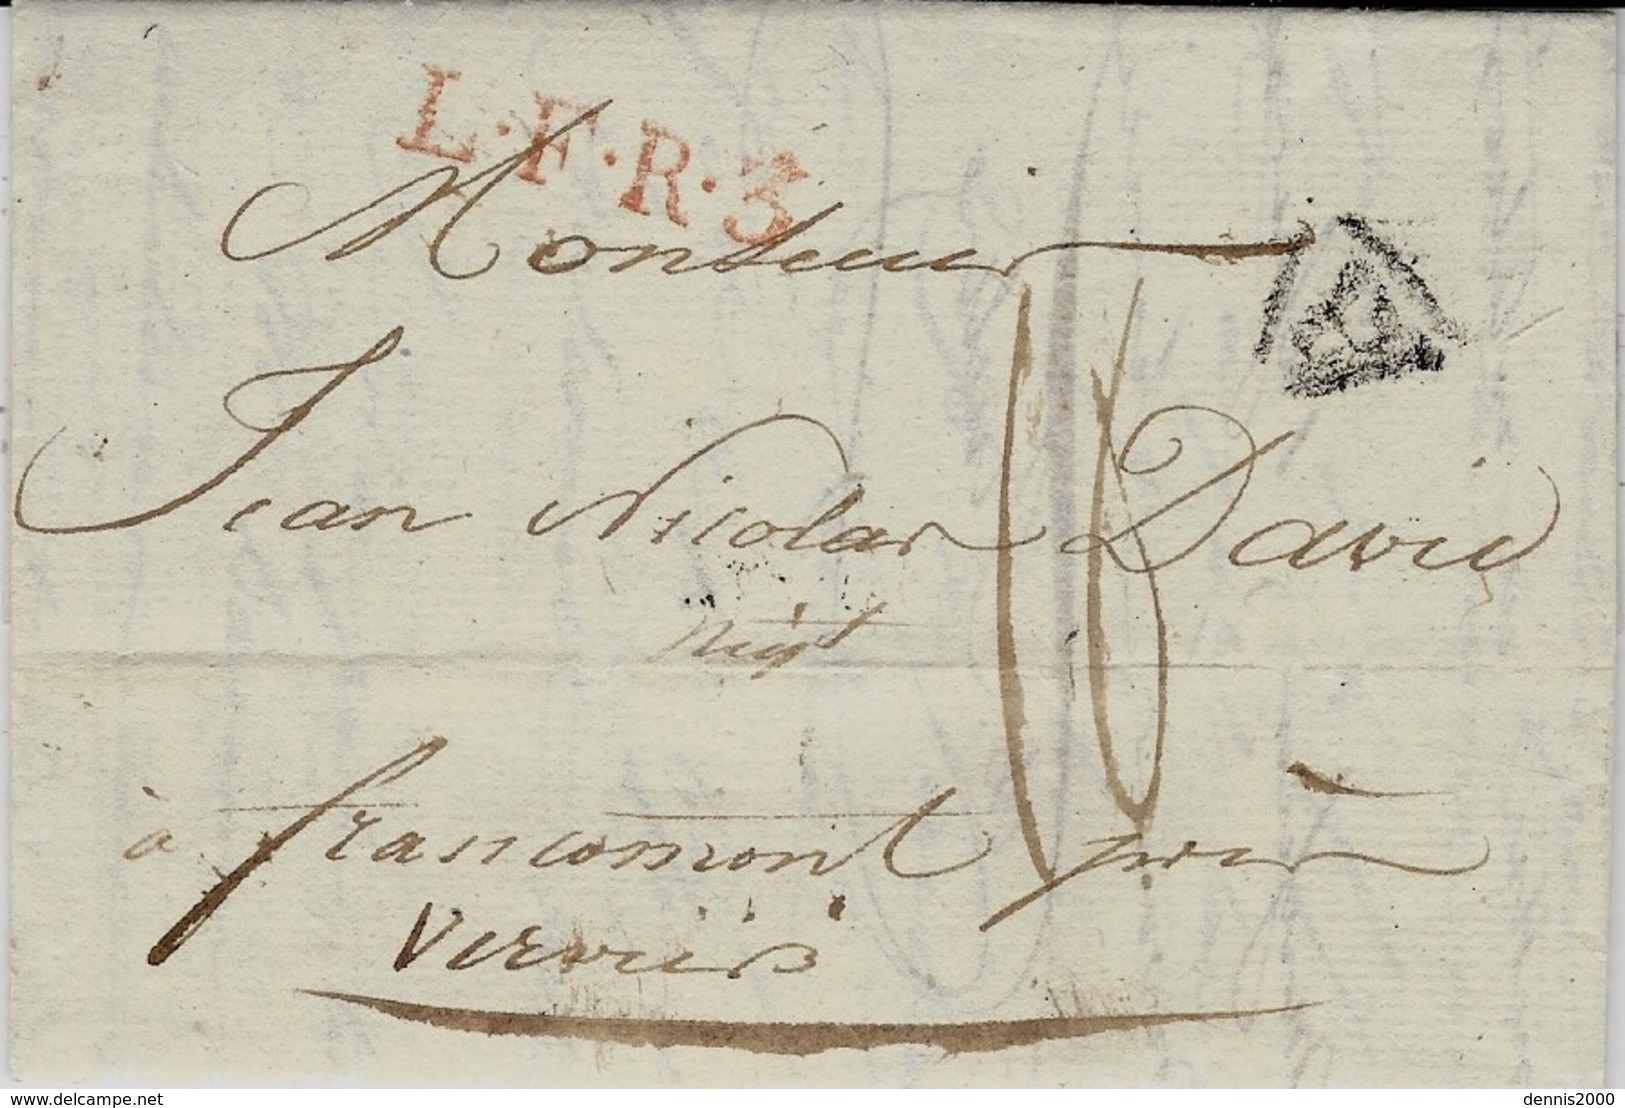 L.F.R.3
Monsieur
Jean Nicolas David
Négt
16
à francomont près
Verviers
delcampe.net
dennis2000